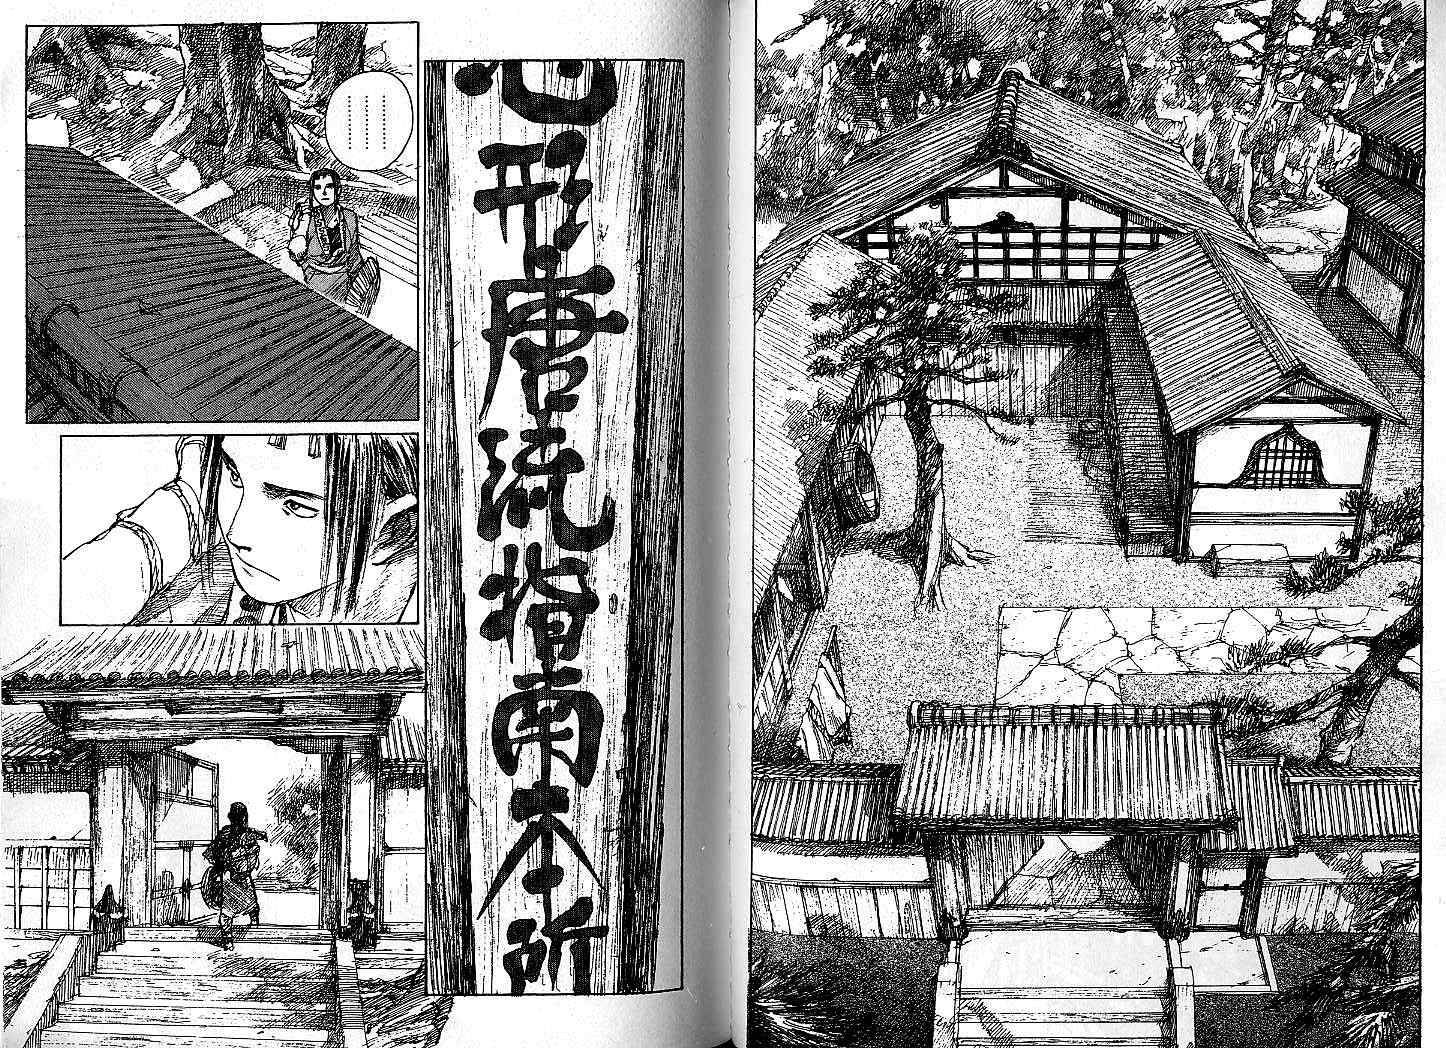 心形唐流指南本所
…………